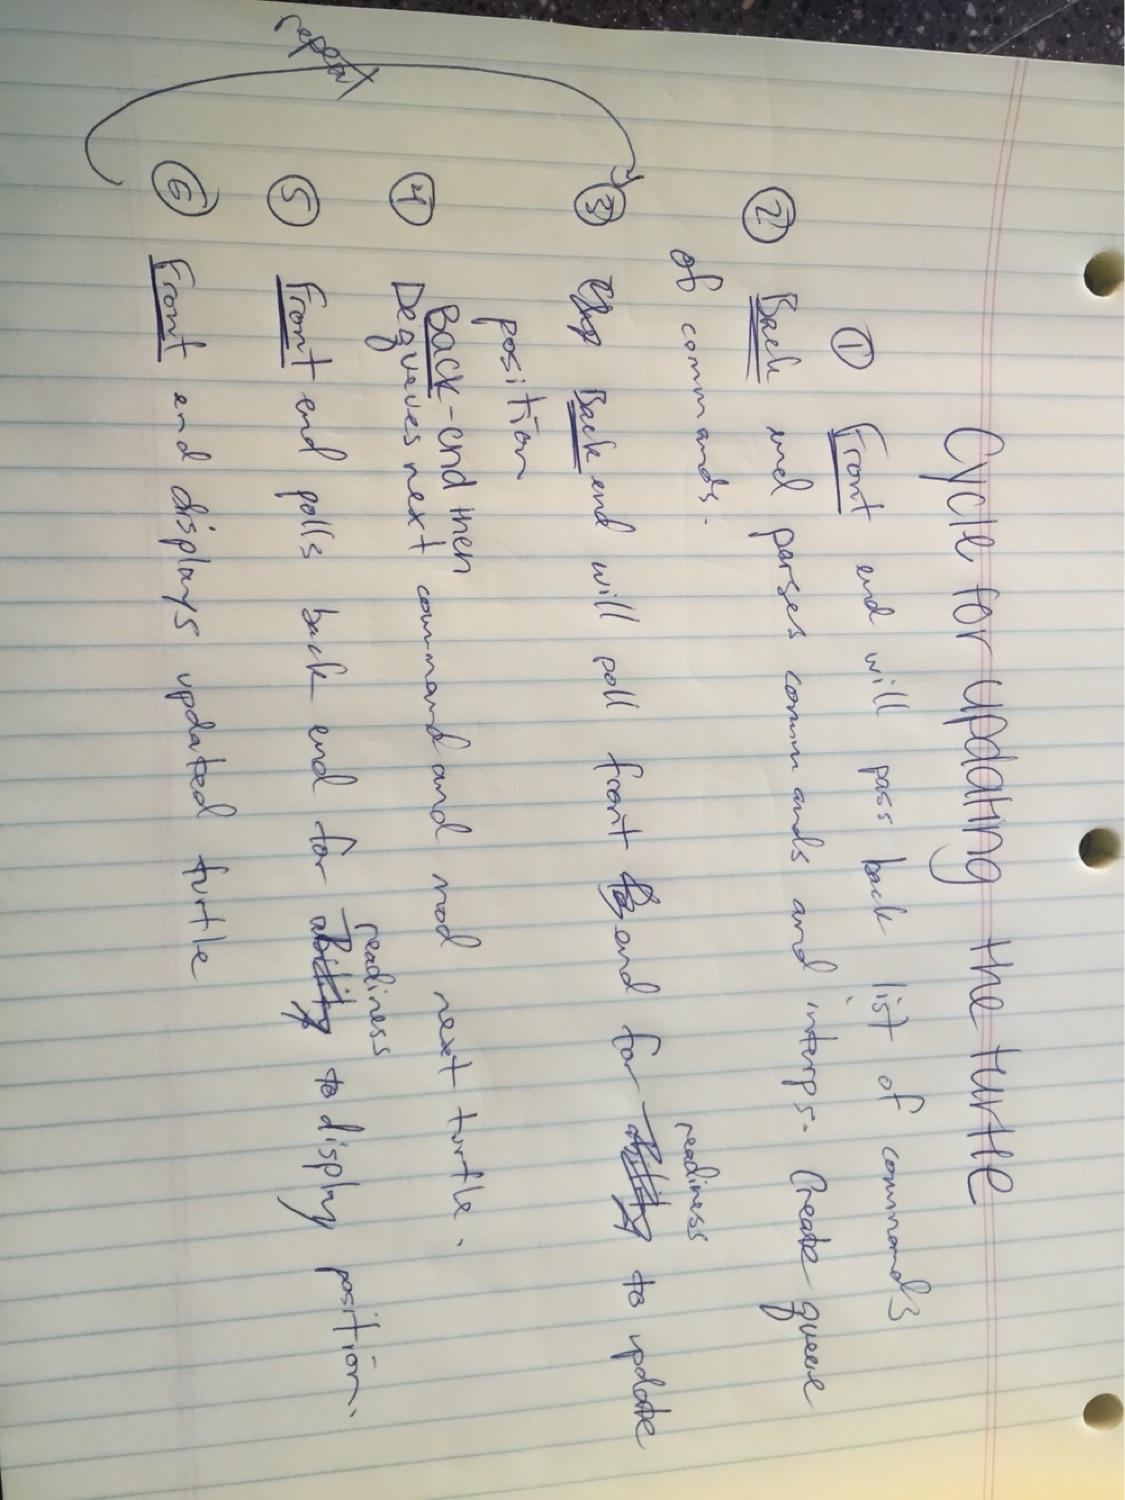 Cycle for updating the turtle
① Front end will pass back list of commands
② Back end parses commands and interps. Create queue
of commands.
③ Back end will poll front end for ability readiness to update
position
④ Back-end then
Dequeues next command and mod next turtle.
⑤ Front end polls back end for ability readiness to display position.
⑥ Front end displays updated turtle
repeat